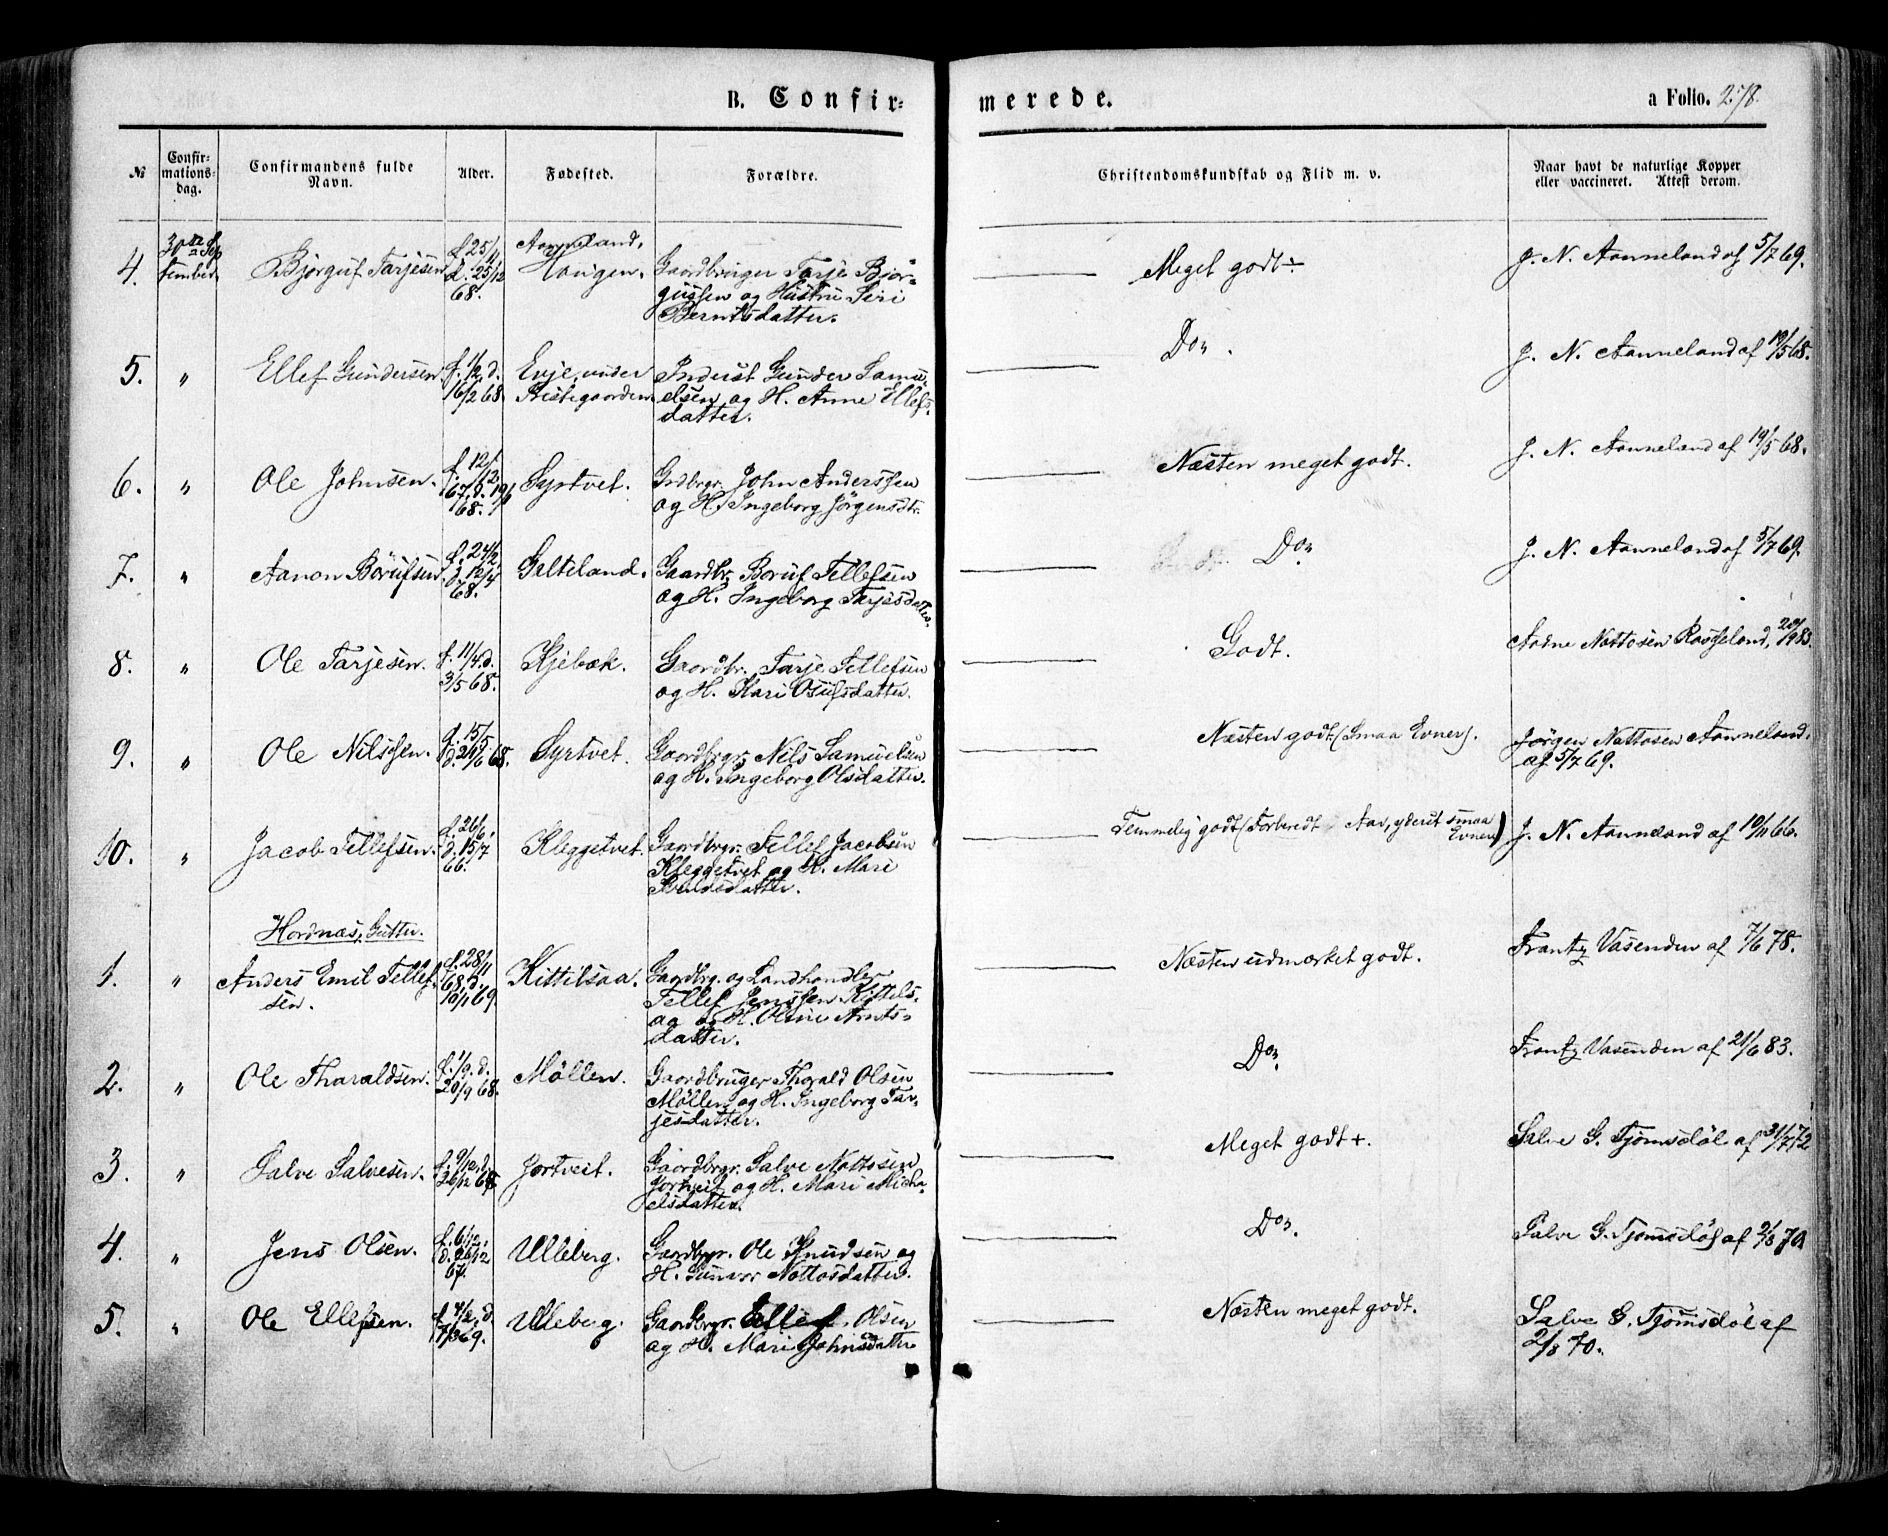 B. Confir-
merede.
a Folio. 278.
№
Confir-
mations-
dag.
Confirmandens fulde
Navn.
Alder.
Fødested.
Forældre.
Christendomskundskab og Flid m. v.
Naar havt de naturlige Kopper
eller vaccineret. Attest derom.
4.
30te Sep
tember.
Bjørguf Tarjesen
f. 25/11
d. 25/12
68.
Aanneland,
Haugen.
Gaardbruger Tarje Bjør-
gufsen og Hustru Siri
Berntsdatter.
Meget godt ÷
J. N. Aanneland af 5/7 69.
5.
"
Ellef Gundersen
f. 1/2, d.
16/2 68
Evje, under
Prestegaarden
Inderst Gunder Samu-
elsen og H. Anne Ellefs-
datter.
Do.
J. N. Aanneland af 19/5 68.
6.
"
Ole Johnsen.
f. 12/12
67, d. 19/1
68.
Syrtvet.
Grdbrgr. John Anderssen
og H. Ingeborg Jörgensdtr.
Næsten meget godt.
J. N. Aanneland af 19/5 68.
7.
"
Aanon Börufsen.
f. 24/2
d. 12/4
68.
Galteland.
Gaardbr. Boruf Tellefsen
og H. Ingeborg Tarjesdatter.
Do.
J. N. Aanneland af 5/7 69.
8.
"
Ole Tarjesen.
f. 11/4 d.
3/5 68.
Kjebæk.
Gaardbr. Tarje Tellefsen
og H. Kari Osufsdatter.
Godt.
Aadne Nottosen Rosseland, 83.
9.
"
Ole Nilssen.
f. 15/5
d. 21/6 68.
Syrtvet.
Gaardbrgr. Nils Samuelsen
og H. Ingeborg Olsdatter.
Næsten godt (Smaa Evner).
Jørgen Nottosen Aanneland.
af 5/7 69.
10.
"
Jacob Tellefsen.
f. 26/6.
d. 15/7
66.
Kleggetvet.
Gaardbrgr. Tellef Jacobsen
Kleggetvet og H. Mari
Temmelig godt (Forberedt Aar, yderst smaa
Evner)
J. N. Aanneland af 19/11 66.
Hordnæs, Gutter.
1.
"
Anders Emil Tellef-
sen.
f. 28/11
68. d.
10/1 69
Kittilsaa.
Gaardbrg. og Landhandler
Tellef Jenssen Kittils-
aa og H. Olsine Arnts-
datter.
Næsten udmærket godt.
Frantz Vasenden af 7/6 78.
2.
"
Ole Tharaldsen.
f. 1/9. d.
20/9 68.
Möllen.
Gaardbruger Tharald Olsen
Møllen og H. Ingeborg Tar-
jesdatter.
Do.
Frantz Vasenden af 21/6 83.
3.
"
Salve Salvesen.
f. 9/12, d.
26/12 68.
Jortveit.
Gaardbrgr. Salve Nottosen
Jortveit og H. Mari Micha-
elsdatter.
Meget godt +.
Salve G. Tjømsdöl af 31/7 72
4.
"
Jens Olsen.
f. 6/12.
d. 26/12
67.
Ulleberg.
Gaardbgr. Ole Knudsen og
H. Gunvor Nottosdatter.
Do.
Salve G. Tjømsdöl af 2/8 70
5.
"
Ole Ellefsen.
f. 4/2, d.
7/3 69.
Ulleberg.
Gaardbrgr. Ellef Olsen
og H. Mari Johnsdatter
Næsten meget godt.
Salve G. Tjømsdöl af
2/8 70.